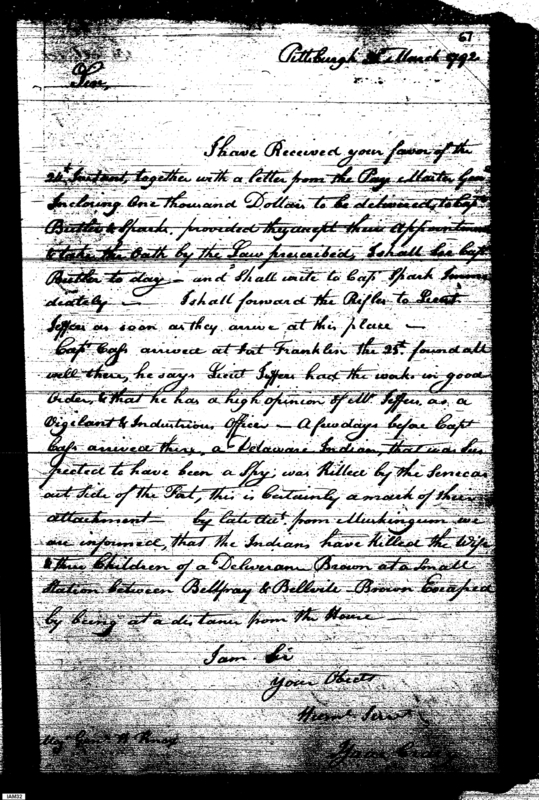 67
Pittsburgh March 1792
Sir,
I have Received your favor of the
24th Instant, together with a letter from the Pay Master Genl
Inclosing One thousand Dollars to be delivered to Capts
Butler & Sparks, provided they accept their Appointments
& take the Oath by the Law prescribed, I shall see Capt
Butler to day – and Shall write to Capt Spark Imme
diately – I shall forward the Rifles to Lieut
Jeffers as soon as they arrive at this place –
Capt Cass arrived at Fort Franklin the 25th found all
well there, he says Lieut Jeffers had the works in good
Order, & that he has a high opinion of Mr Jeffers as a
Vigilant & Industrious Officer – A few days before Capt
Cass arrived there, a Delaware Indian, that was Sus
pected to have been a Spy, was Killed by the Senecas
out Side of the Fort, this is Certainly a mark of their
attachment – by late Acts. from Muskingum we
are informed, that the Indians have Killed the Wife
& three Children of a Deliverance Brown at a Small
Station between Bellpray & Bellvile – Brown Escaped
by being at a distance from the House –
I am Sir
Your Obedt
Huml Servt
Isaac Craig
Majr Genl H Knox
IAM32